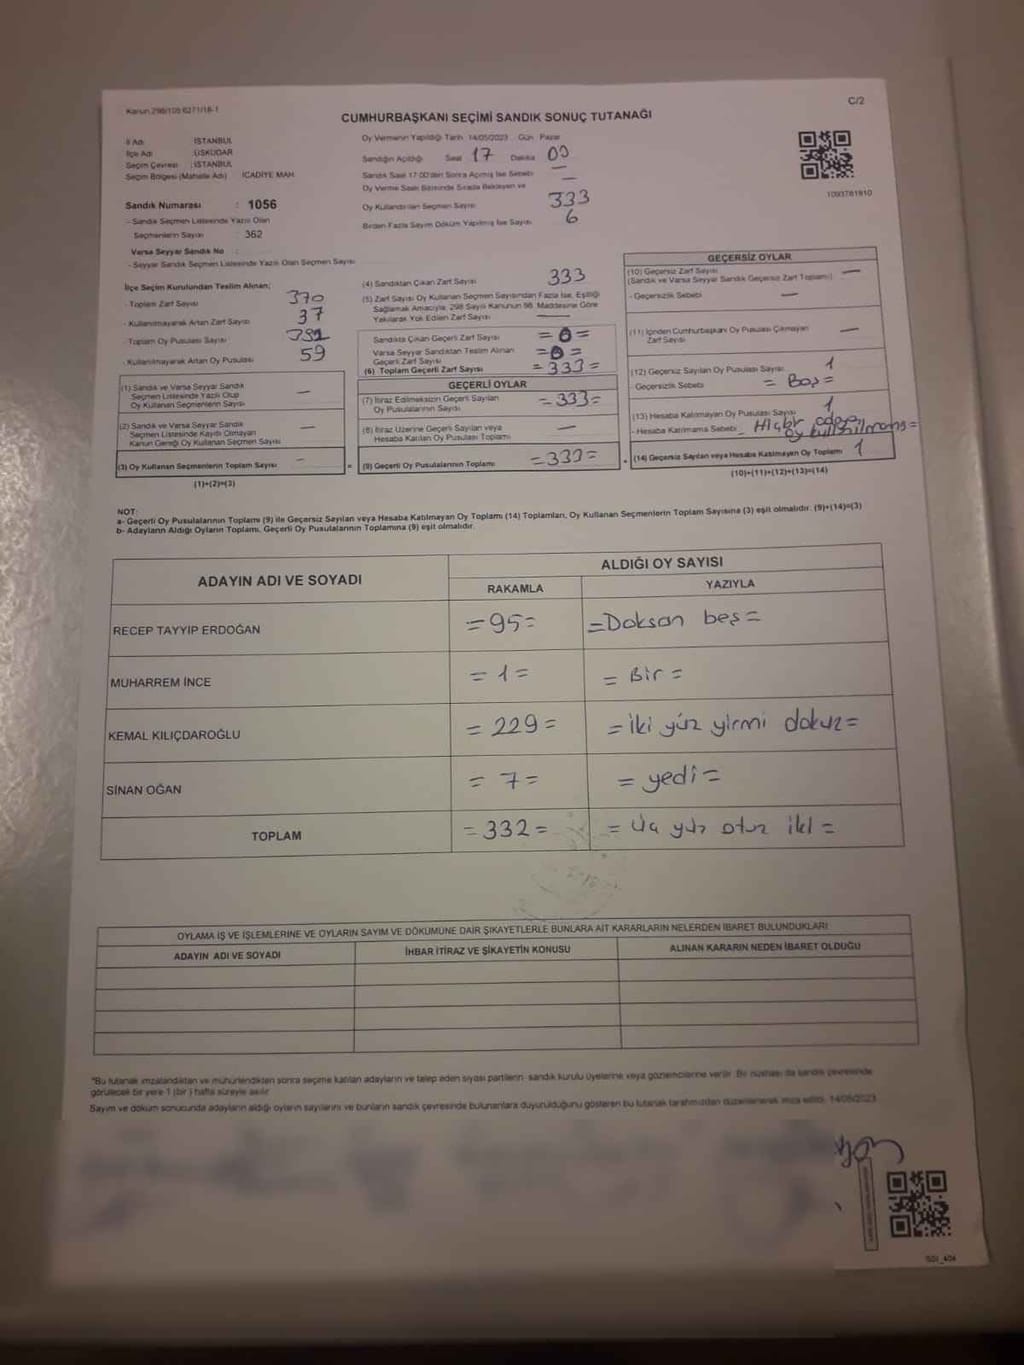 Karun 298/105 6271/18-1
C/2
CUMHURBAŞKANI SEÇİMİ SANDIK SONUÇ TUTANAĞI
İl Adı : İSTANBUL
İlçe Adı : ÜSKÜDAR
Seçim Çevresi : İSTANBUL
Seçim Bölgesi (Mahalle Adı) : ICADİYE MAH
Sandık Numarası : 1056
- Sandık Seçmen Listesinde Yazılı Olan
Seçmenlerin Sayısı : 362
Varsa Seyyar Sandık No :
- Seyyar Sandık Seçmen Listesinde Yazılı Olan Seçmen Sayısı
Oy Vermenin Yapıldığı Tarih 14/05/2023 Gün Pazar
Sandığın Açıldığı Saat 17 Dakika 00
Sandık Saat 17:00'den Sonra Açılmış İse Sebebi —
Oy Verme Saati Bitiminde Sırada Bekleyen ve —
Oy Kullandırılan Seçmen Sayısı 333
Birden Fazla Sayım Döküm Yapılmış İse Sayısı 6
1093781910
İlçe Seçim Kurulundan Teslim Alınan;
- Toplam Zarf Sayısı 370
- Kullanılmayarak Artan Zarf Sayısı 37
- Toplam Oy Pusulası Sayısı
- Kullanılmayarak Artan Oy Pusulası 59
(1) Sandık ve Varsa Seyyar Sandık
Seçmen Listesinde Yazılı Olup
Oy Kullanan Seçmenlerin Sayısı —
(2) Sandık ve Varsa Seyyar Sandık
Seçmen Listesinde Kayıtlı Olmayan
Kanun Gereği Oy Kullanan Seçmen Sayısı —
(3) Oy Kullanan Seçmenlerin Toplam Sayısı —
(1)+(2)=(3)
(4) Sandıktan Çıkan Zarf Sayısı 333
(5) Zarf Sayısı Oy Kullanan Seçmen Sayısından Fazla İse, Eşitliği
Sağlamak Amacıyla; 298 Sayılı Kanunun 98. Maddesine Göre
Yakılarak Yok Edilen Zarf Sayısı —
Sandıkta Çıkan Geçerli Zarf Sayısı = 0 =
Varsa Seyyar Sandıktan Teslim Alınan
Geçerli Zarf Sayısı = 0 =
(6) Toplam Geçerli Zarf Sayısı = 333 =
GEÇERLİ OYLAR
(7) İtiraz Edilmeksizin Geçerli Sayılan
Oy Pusulalarının Sayısı = 333 =
(8) İtiraz Üzerine Geçerli Sayılan veya
Hesaba Katılan Oy Pusulası Toplamı —
= (9) Geçerli Oy Pusulalarının Toplamı
GEÇERSİZ OYLAR
(10) Geçersiz Zarf Sayısı —
(Sandık ve Varsa Seyyar Sandık Geçersiz Zarf Toplamı)
- Geçersizlik Sebebi —
(11) İçinden Cumhurbaşkanı Oy Pusulası Çıkmayan
Zarf Sayısı —
(12) Geçersiz Sayılan Oy Pusulası Sayısı 1
Geçersizlik Sebebi = Boş =
(13) Hesaba Katılmayan Oy Pusulası Sayısı 1
- Hesaba Katılmama Sebebi
+ (14) Geçersiz Sayılan veya Hesaba Katılmayan Oy Toplamı 1
(10)+(11)+(12)+(13)=(14)
NOT:
a- Geçerli Oy Pusulalarının Toplamı (9) ile Geçersiz Sayılan veya Hesaba Katılmayan Oy Toplamı (14) Toplamları, Oy Kullanan Seçmenlerin Toplam Sayısına (3) eşit olmalıdır. (9)+(14)=(3)
b- Adayların Aldığı Oyların Toplamı, Geçerli Oy Pusulalarının Toplamına (9) eşit olmalıdır.
ADAYIN ADI VE SOYADI
ALDIĞI OY SAYISI
RAKAMLA YAZIYLA
RECEP TAYYİP ERDOĞAN = 95 = = Doksan beş =
MUHARREM İNCE = 1 = = Bir =
KEMAL KILIÇDAROĞLU = 229 = = iki yüz yirmi dokuz =
SİNAN OĞAN = 7 = = yedi =
TOPLAM = 332 = = üç yüz otuz iki =
OYLAMA İŞ VE İŞLEMLERİNE VE OYLARIN SAYIM VE DÖKÜMÜNE DAİR ŞİKAYETLERLE BUNLARA AİT KARARLARIN NELERDEN İBARET BULUNDUKLARI
ADAYIN ADI VE SOYADI İHBAR İTİRAZ VE ŞİKAYETİN KONUSU ALINAN KARARIN NEDEN İBARET OLDUĞU
"Bu tutanak imzalandıktan ve mühürlendikten sonra seçime katılan adayların ve talep eden siyasi partilerin sandık kurulu üyelerine veya gözlemcilerine verilir. Bir nüshası da sandık çevresinde
görülecek bir yere 1 (bir) hafta süreyle asılır.
Sayım ve döküm sonucunda adayların aldığı oyların sayılarını ve bunların sandık çevresinde bulunanlara duyurulduğunu gösteren bu tutanak tarafımızdan düzenlenerek imza edildi. 14/05/2023